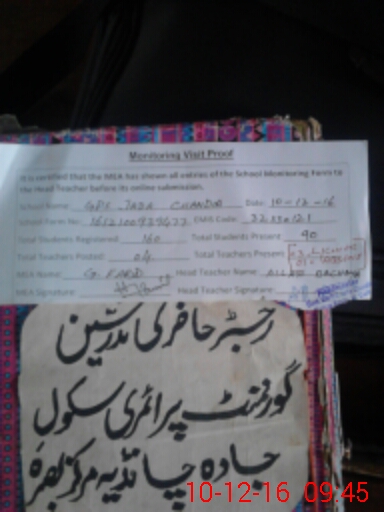 Monitoring Visit Proof
It is certified that the MEA has shown all entries of the School Monitoring Form to
the Head Teacher before its online submission.
School Name: GPS JADA CHANDIA Date: 10-12-16
School Form No: EMIS Code:
Total Students Registered: 160 Total Students Present: 90
Total Teachers Posted: 04 Total Teachers Present:
MEA Name: Head Teacher Name:
MEA Signature: Head Teacher Signature:
رجسٹر حاضری مدرسین
گورنمنٹ پرائمری سکول
جادہ چانڈیہ مرکز بصرہ
10-12-16 09:45